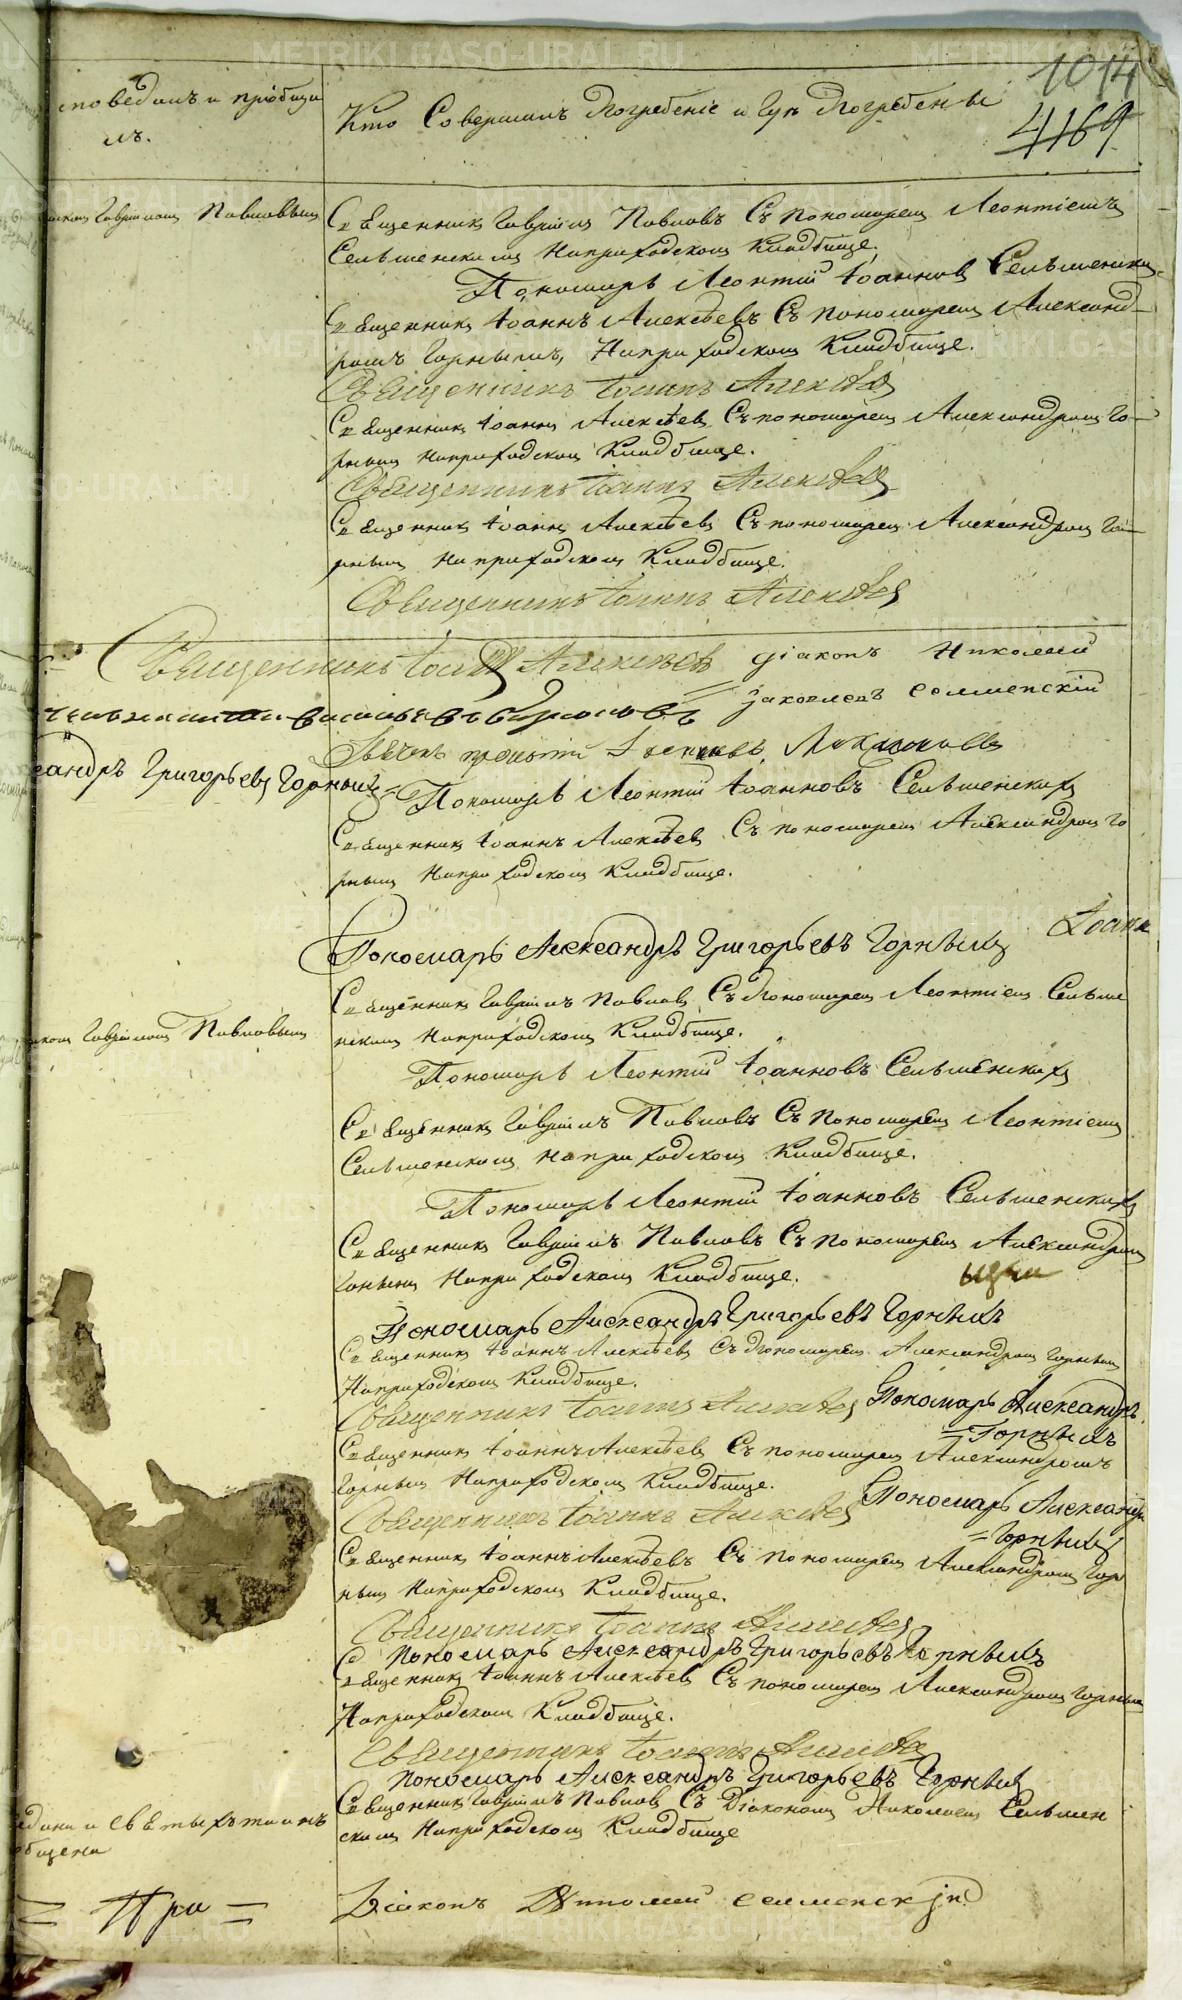 1014
4169
Кто Совершилъ Погребеніе и Гдѣ Погребены
лъ.
Гавриломъ Павловымъ
Священникъ Гавріилъ Павловъ Съ пономаремъ Леонтіемъ
Сельменскимъ На приходскомъ Кладбище.
Пономарь Леонтій Іоанновъ Сельменскихъ
Священникъ Іоаннъ Алексѣевъ Съ пономаремъ Александ-
ромъ Горнымъ, На приходскомъ Кладбище.
Священникъ Іоаннъ Алексѣевъ
Священникъ Іоаннъ Алексѣевъ Съ пономаремъ Александромъ Го-
рнымъ На приходскомъ Кладбище.
Священникъ Іоаннъ Алексѣевъ
Священникъ Іоаннъ Алексѣевъ Съ пономаремъ Александромъ Го-
рнымъ На приходскомъ Кладбище.
Священникъ Іоаннъ Алексѣевъ
Священникъ Іоаннъ Алексѣевъ діаконъ Николай
Яковлевъ селменскій
Григорьевъ Горныхъ
Пономарь Леонтій Іоанновъ Сельменскихъ
Священникъ Іоаннъ Алексѣевъ Съ пономаремъ Александромъ Го
рнымъ На приходскомъ Кладбище.
Пономарь Александръ Григорьевъ Горныхъ
Священникъ Гавріилъ Павловъ Съ Пономаремъ Леонтіемъ Сельме
нскимъ На приходскомъ Кладбище.
Гавриломъ Павловымъ
Пономарь Леонтій Іоанновъ Сельменскихъ
Священникъ Гавріилъ Павловъ Съ пономаремъ Леонтіемъ
Сельменскимъ На приходскомъ Кладбище.
Пономарь Леонтій Іоанновъ Сельменскихъ
Священникъ Гавріилъ Павловъ Съ пономаремъ Александромъ
На приходскомъ Кладбище.
Пономарь Александръ Григорьевъ Горныхъ
Священникъ Іоаннъ Алексѣевъ Съ Пономаремъ Александромъ Горнымъ
На приходскомъ Кладбище.
Священникъ Іоаннъ Алексѣевъ Пономарь Александръ
Горныхъ
Священникъ Іоаннъ Алексѣевъ Съ пономаремъ Александромъ
Горнымъ На приходскомъ Кладбище.
Священникъ Іоаннъ Алексѣевъ Пономарь Александръ
Горныхъ
Священникъ Іоаннъ Алексѣевъ Съ пономаремъ Александромъ Гор
нымъ На приходскомъ Кладбище.
Священникъ Іоаннъ Алексѣевъ
Пономарь Александръ Григорьевъ Горныхъ
Священникъ Іоаннъ Алексѣевъ Съ пономаремъ Александромъ Горнымъ
На приходскомъ Кладбище.
Священникъ Іоаннъ Алексѣевъ
Пономарь Александръ Григорьевъ Горныхъ
Священникъ Гавріилъ Павловъ Съ Діакономъ Николаемъ Сельмен
скимъ На приходскомъ Кладбище
= При =
Діаконъ Николай селменскій
METRIKI.GASO-URAL.RU